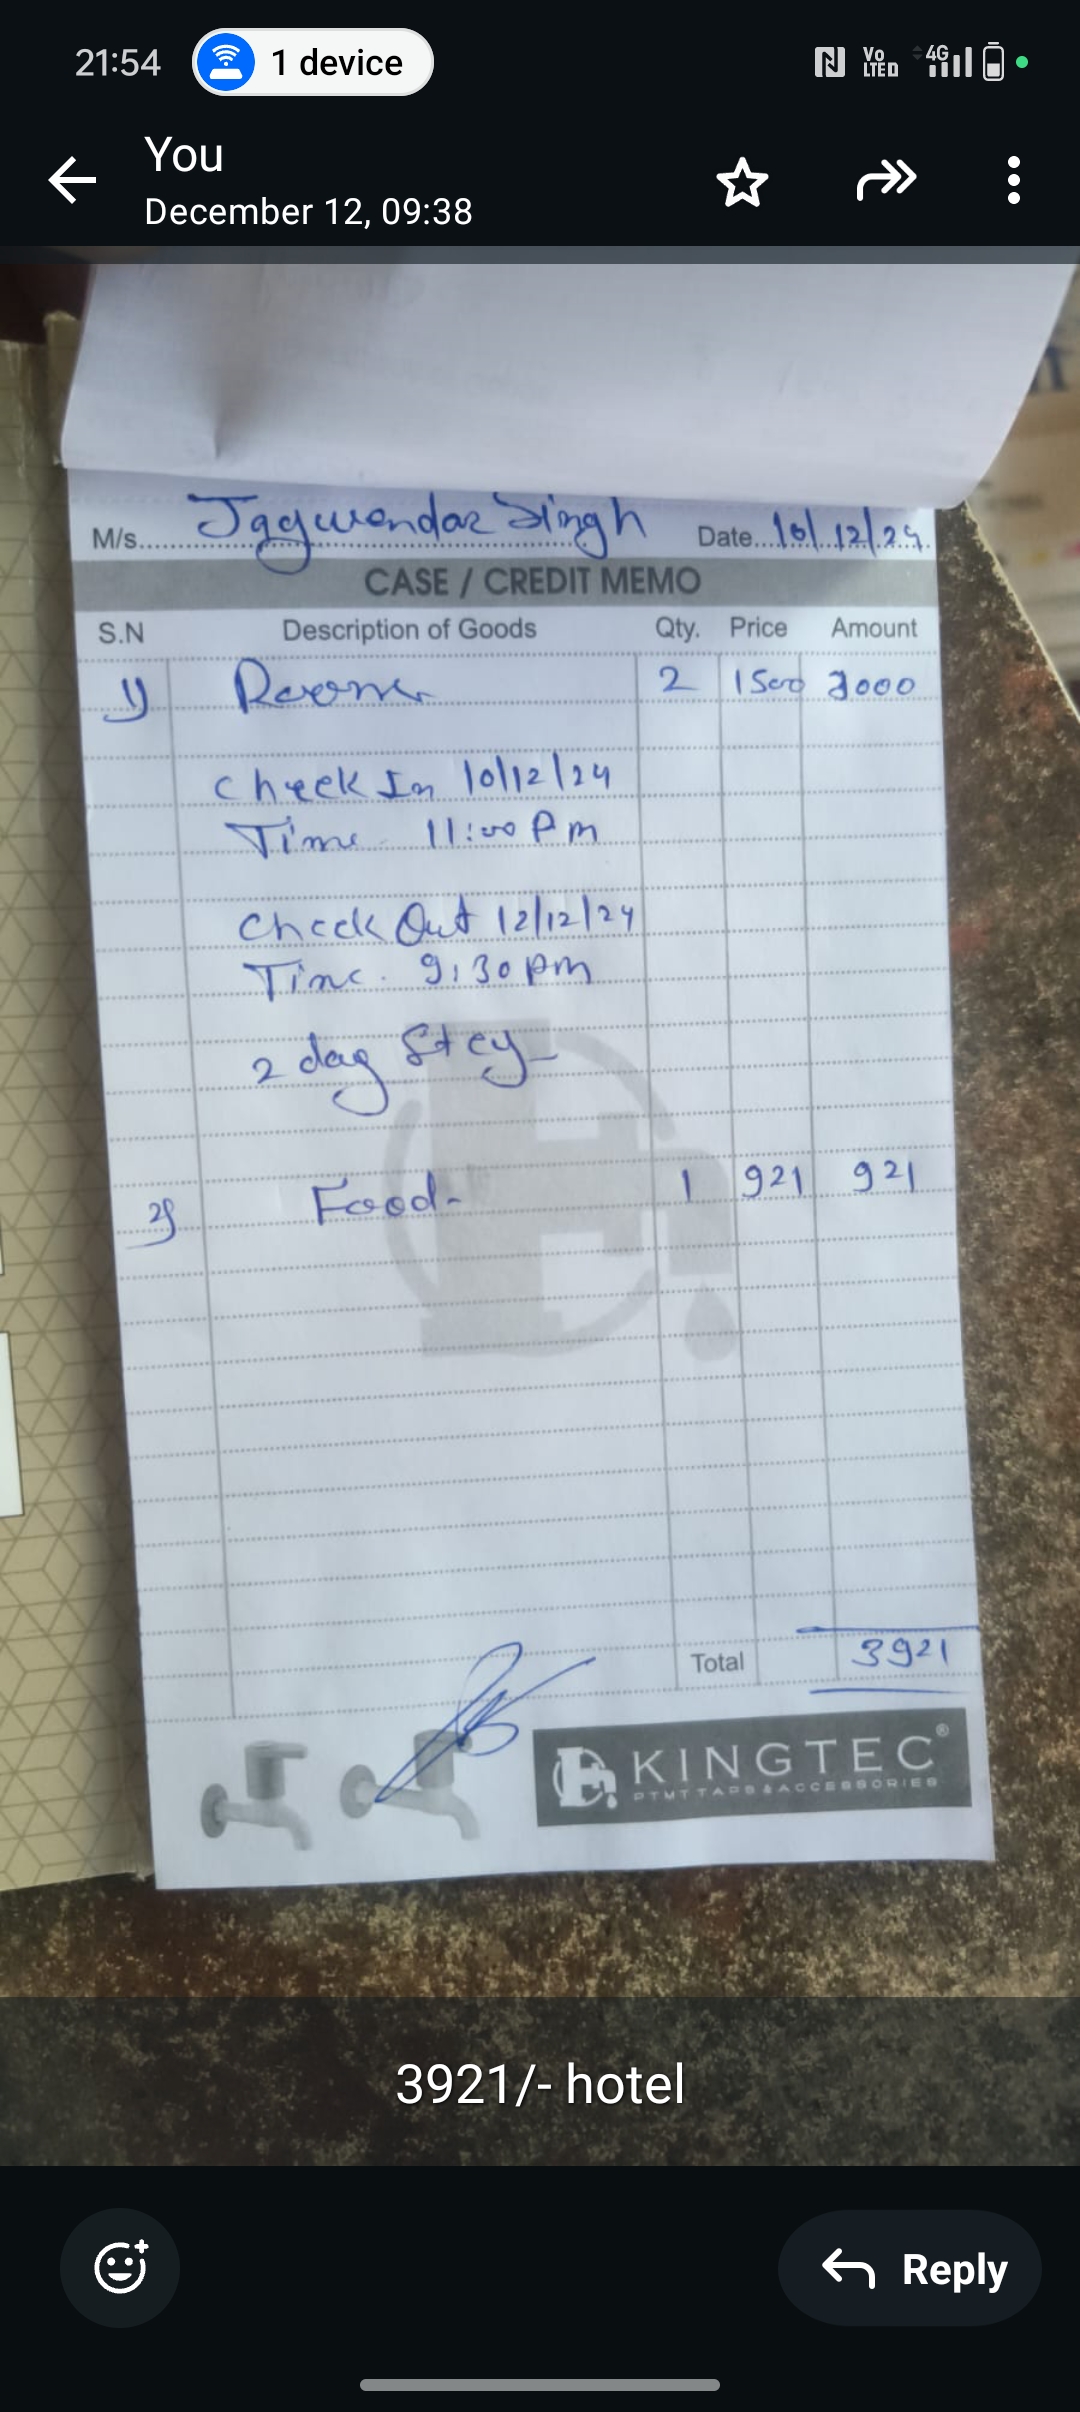 21:54 1 device Vo LTE D 4G
You
December 12, 09:38
M/s. Jagwendar Singh Date 10/12/24
CASE / CREDIT MEMO
S.N Description of Goods Qty. Price Amount
1) Room 2 1500 3000
Check In 10/12/24
Time 11:00 Pm
Check Out 12/12/24
Time. 9:30 pm
2 day Stey
2) Food- 1 921 921
Total 3921
KINGTEC®
PTMT TAPS & ACCESSORIES
3921/- hotel
Reply